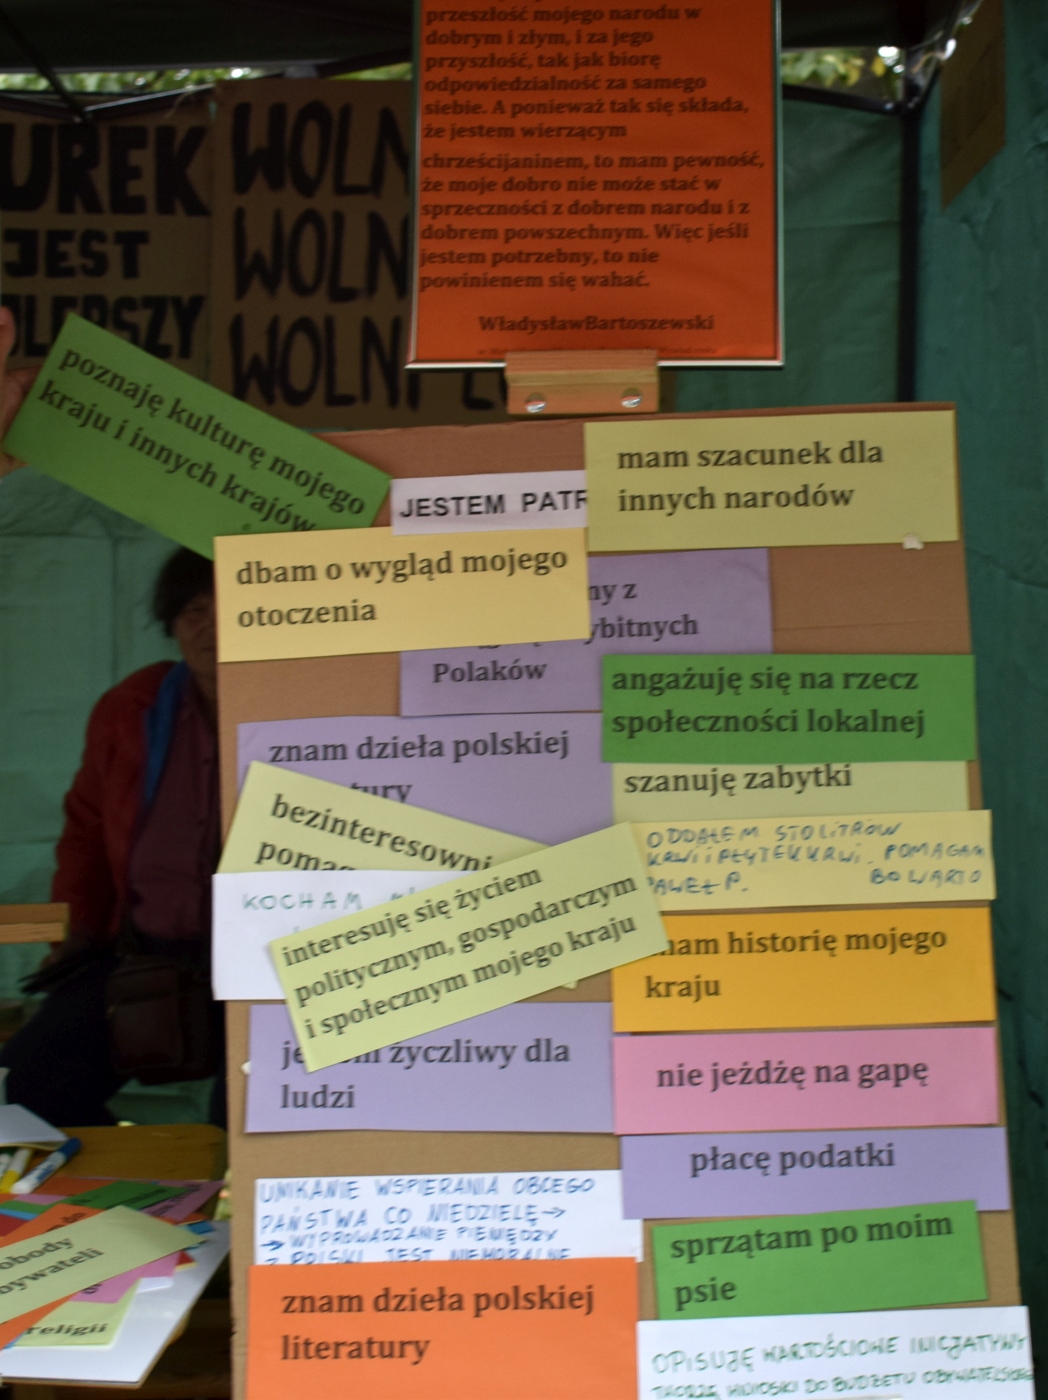 przeszłość mojego narodu w
dobrym i złym, i za jego
przyszłość, tak jak biorę
odpowiedzialność za samego
siebie. A ponieważ tak się składa,
że jestem wierzącym
chrześcijaninem, to mam pewność,
że moje dobro nie może stać w
sprzeczności z dobrem narodu i z
dobrem powszechnym. Więc jeśli
jestem potrzebny, to nie
powinienem się wahać.
WładysławBartoszewski
UREK
JEST
LEPSZY
WOLN
WOLN
WOLNI
poznaję kulturę mojego
kraju i innych krajów
JESTEM PATR
mam szacunek dla
innych narodów
dbam o wygląd mojego
otoczenia
ny z
ybitnych
Polaków
angażuję się na rzecz
społeczności lokalnej
znam dzieła polskiej
tury
szanuję zabytki
bezinteresowni
pomag
ODDAŁEM STO LITRÓW
KRWI I PŁYTEK KRWI. POMAGAM
PAWEŁ P. BO WARTO
KOCHAM
interesuję się życiem
politycznym, gospodarczym
i społecznym mojego kraju
nam historię mojego
kraju
je m życzliwy dla
ludzi
nie jeżdżę na gapę
płacę podatki
UNIKANIE WSPIERANIA OBCEGO
PAŃSTWA CO NIEDZIELĘ →
→ WYPROWADZANIE PIENIĘDZY
Z POLSKI JEST NIEMORALNE
sprzątam po moim
psie
znam dzieła polskiej
literatury
OPISUJĘ WARTOŚCIOWE INICJATYWY
TWORZĘ WNIOSKI DO BUDŻETU OBYWATELSKIEGO
obody
bywateli
religii